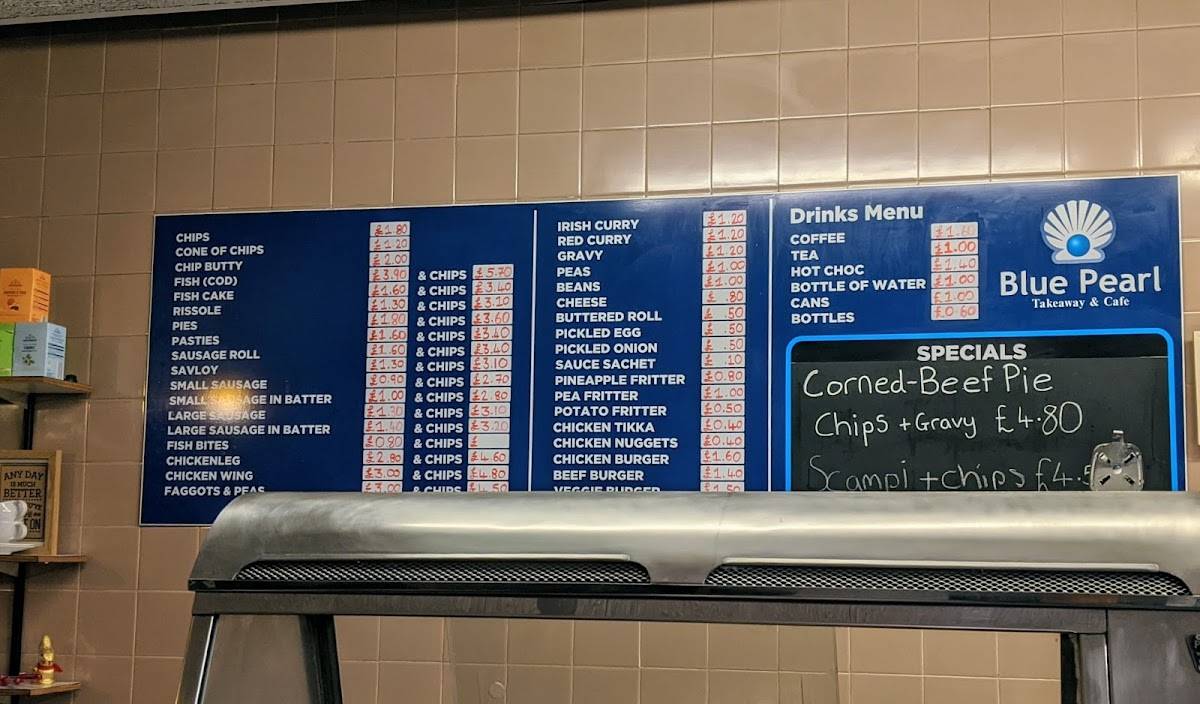 CHIPS £1.80
CONE OF CHIPS £1.20
CHIP BUTTY £2.00
FISH (COD) £3.90 & CHIPS £5.70
FISH CAKE £1.60 & CHIPS £3.40
RISSOLE £1.30 & CHIPS £3.10
PIES £1.90 & CHIPS £3.60
PASTIES £1.60 & CHIPS £3.40
SAUSAGE ROLL £1.60 & CHIPS £3.40
SAVLOY £1.30 & CHIPS £3.10
SMALL SAUSAGE £0.90 & CHIPS £2.70
SMALL SAUSAGE IN BATTER £1.00 & CHIPS £2.80
LARGE SAUSAGE £1.30 & CHIPS £3.10
LARGE SAUSAGE IN BATTER £1.40 & CHIPS £3.20
FISH BITES £0.80 & CHIPS £
CHICKENLEG £2.80 & CHIPS £4.60
CHICKEN WING £3.00 & CHIPS £4.80
FAGGOTS & PEAS £3.00 & CHIPS £4.50
IRISH CURRY £1.20
RED CURRY £1.20
GRAVY £1.20
PEAS £1.00
BEANS £1.00
CHEESE £.80
BUTTERED ROLL £.50
PICKLED EGG £.50
PICKLED ONION £.50
SAUCE SACHET £.10
PINEAPPLE FRITTER £0.80
PEA FRITTER £1.00
POTATO FRITTER £0.50
CHICKEN TIKKA £0.40
CHICKEN NUGGETS £0.40
CHICKEN BURGER £1.60
BEEF BURGER £1.40
VEGGIE BURGER £1.50
Drinks Menu
COFFEE £1.60
TEA £1.00
HOT CHOC £1.40
BOTTLE OF WATER £1.00
CANS £1.00
BOTTLES £0.60
Blue Pearl
Takeaway & Cafe
SPECIALS
Corned-Beef Pie
Chips + Gravy £4.80
Scampi + chips £4.5
ANY DAY
IS MUCH
BETTER